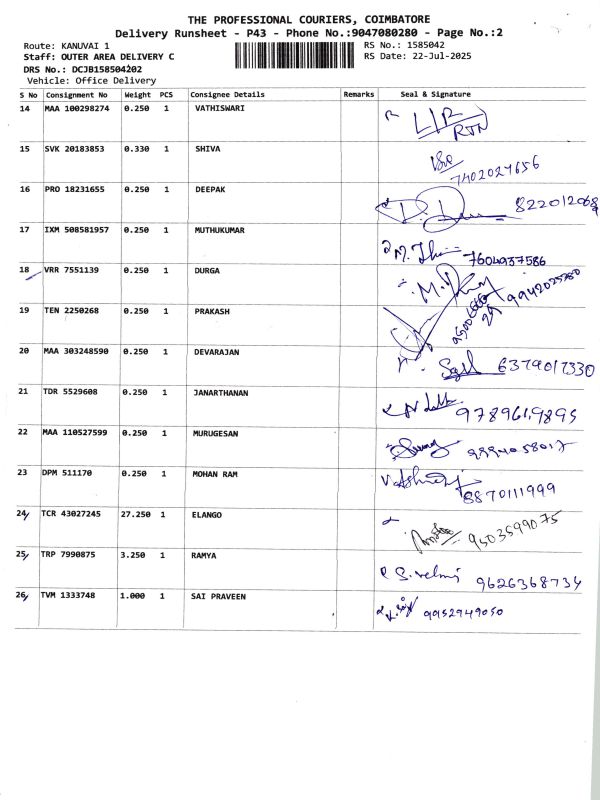 THE PROFESSIONAL COURIERS, COIMBATORE
Delivery Runsheet - P43 - Phone No.:9047080280 - Page No.:2
Route: KANUVAI 1 RS No.: 1585042
Staff: OUTER AREA DELIVERY C RS Date: 22-Jul-2025
DRS No.: DCJB158504202
Vehicle: Office Delivery
S No Consignment No Weight PCS Consignee Details Remarks Seal & Signature
14 MAA 100298274 0.250 1 VATHISWARI
RTN
15 SVK 20183853 0.330 1 SHIVA
7402027656
16 PRO 18231655 0.250 1 DEEPAK
17 IXM 508581957 0.250 1 MUTHUKUMAR
7604937586
18 VRR 7551139 0.250 1 DURGA
9942025780
19 TEN 2250268 0.250 1 PRAKASH
20 MAA 303248590 0.250 1 DEVARAJAN
6379017330
21 TDR 5529608 0.250 1 JANARTHANAN
9789619895
22 MAA 110527599 0.250 1 MURUGESAN
9994058017
23 DPM 511170 0.250 1 MOHAN RAM
8870111999
24 TCR 43027245 27.250 1 ELANGO
9503599075
25 TRP 7990875 3.250 1 RAMYA
9626368734
26 TVM 1333748 1.000 1 SAI PRAVEEN
9952949050